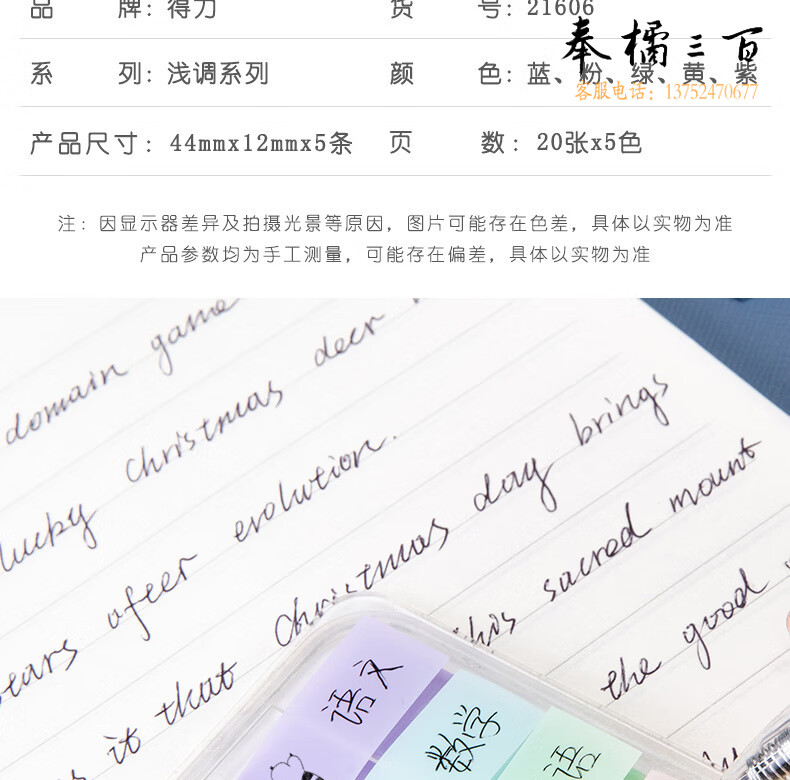 品 牌：得力 货 号：21606
奉橘三百
系 列：浅调系列 颜 色：蓝、粉、绿、黄、紫
客服电话：13752470677
产品尺寸：44mmx12mmx5条 页 数：20张x5色
注：因显示器差异及拍摄光景等原因，图片可能存在色差，具体以实物为准
产品参数均为手工测量，可能存在偏差，具体以实物为准
domain game
lucky christmas deer
ears afeer evolution.
s it that christmas day brings
this sacred mount
the good
语文
数学
语